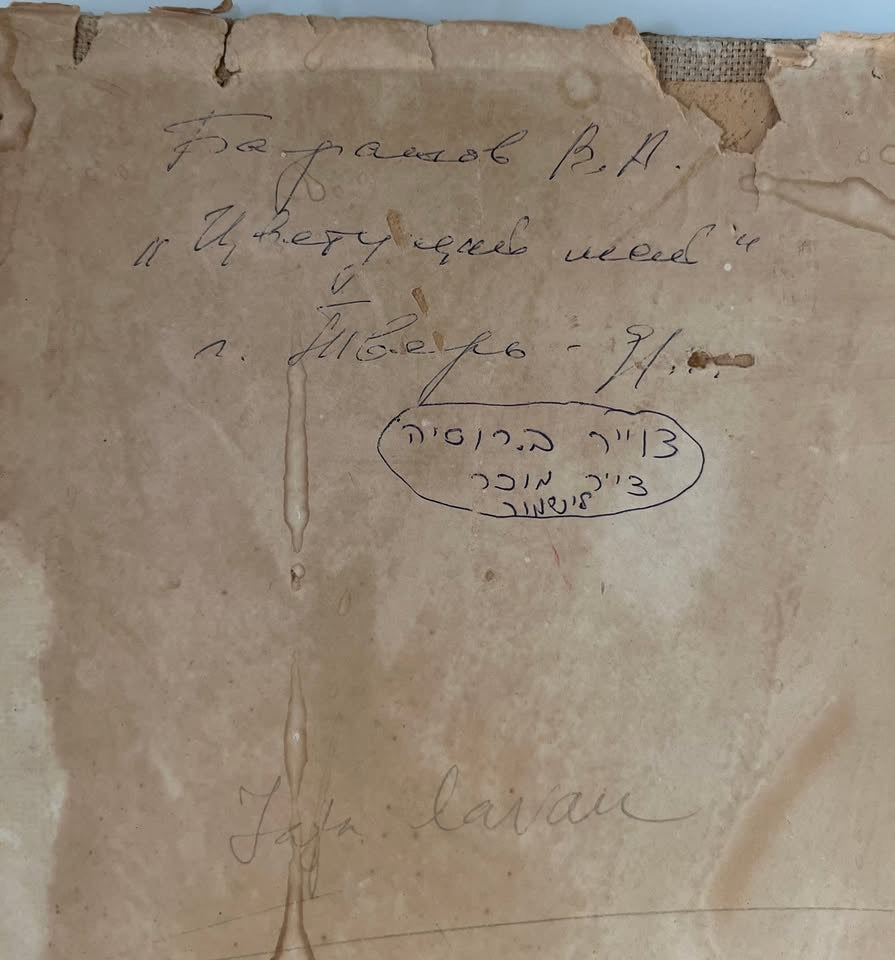 Баранов В. А.
„Цветущий май"
г. Тверь - 91...
צוייר ב.רוסיה
צייר מוכר
לישמור